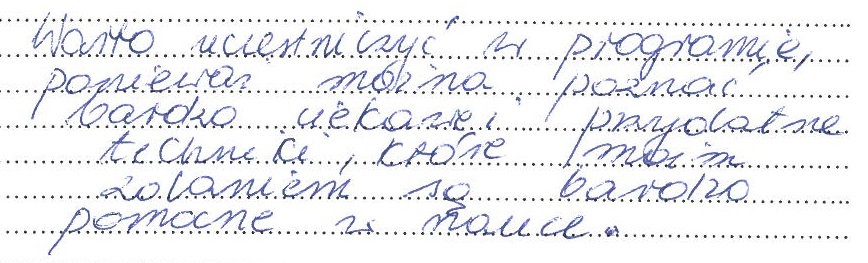 Warto uczestniczyć w programie,
ponieważ można poznać
bardzo ciekawe i przydatne
techniki, które moim
zdaniem są bardzo
pomocne w nauce.